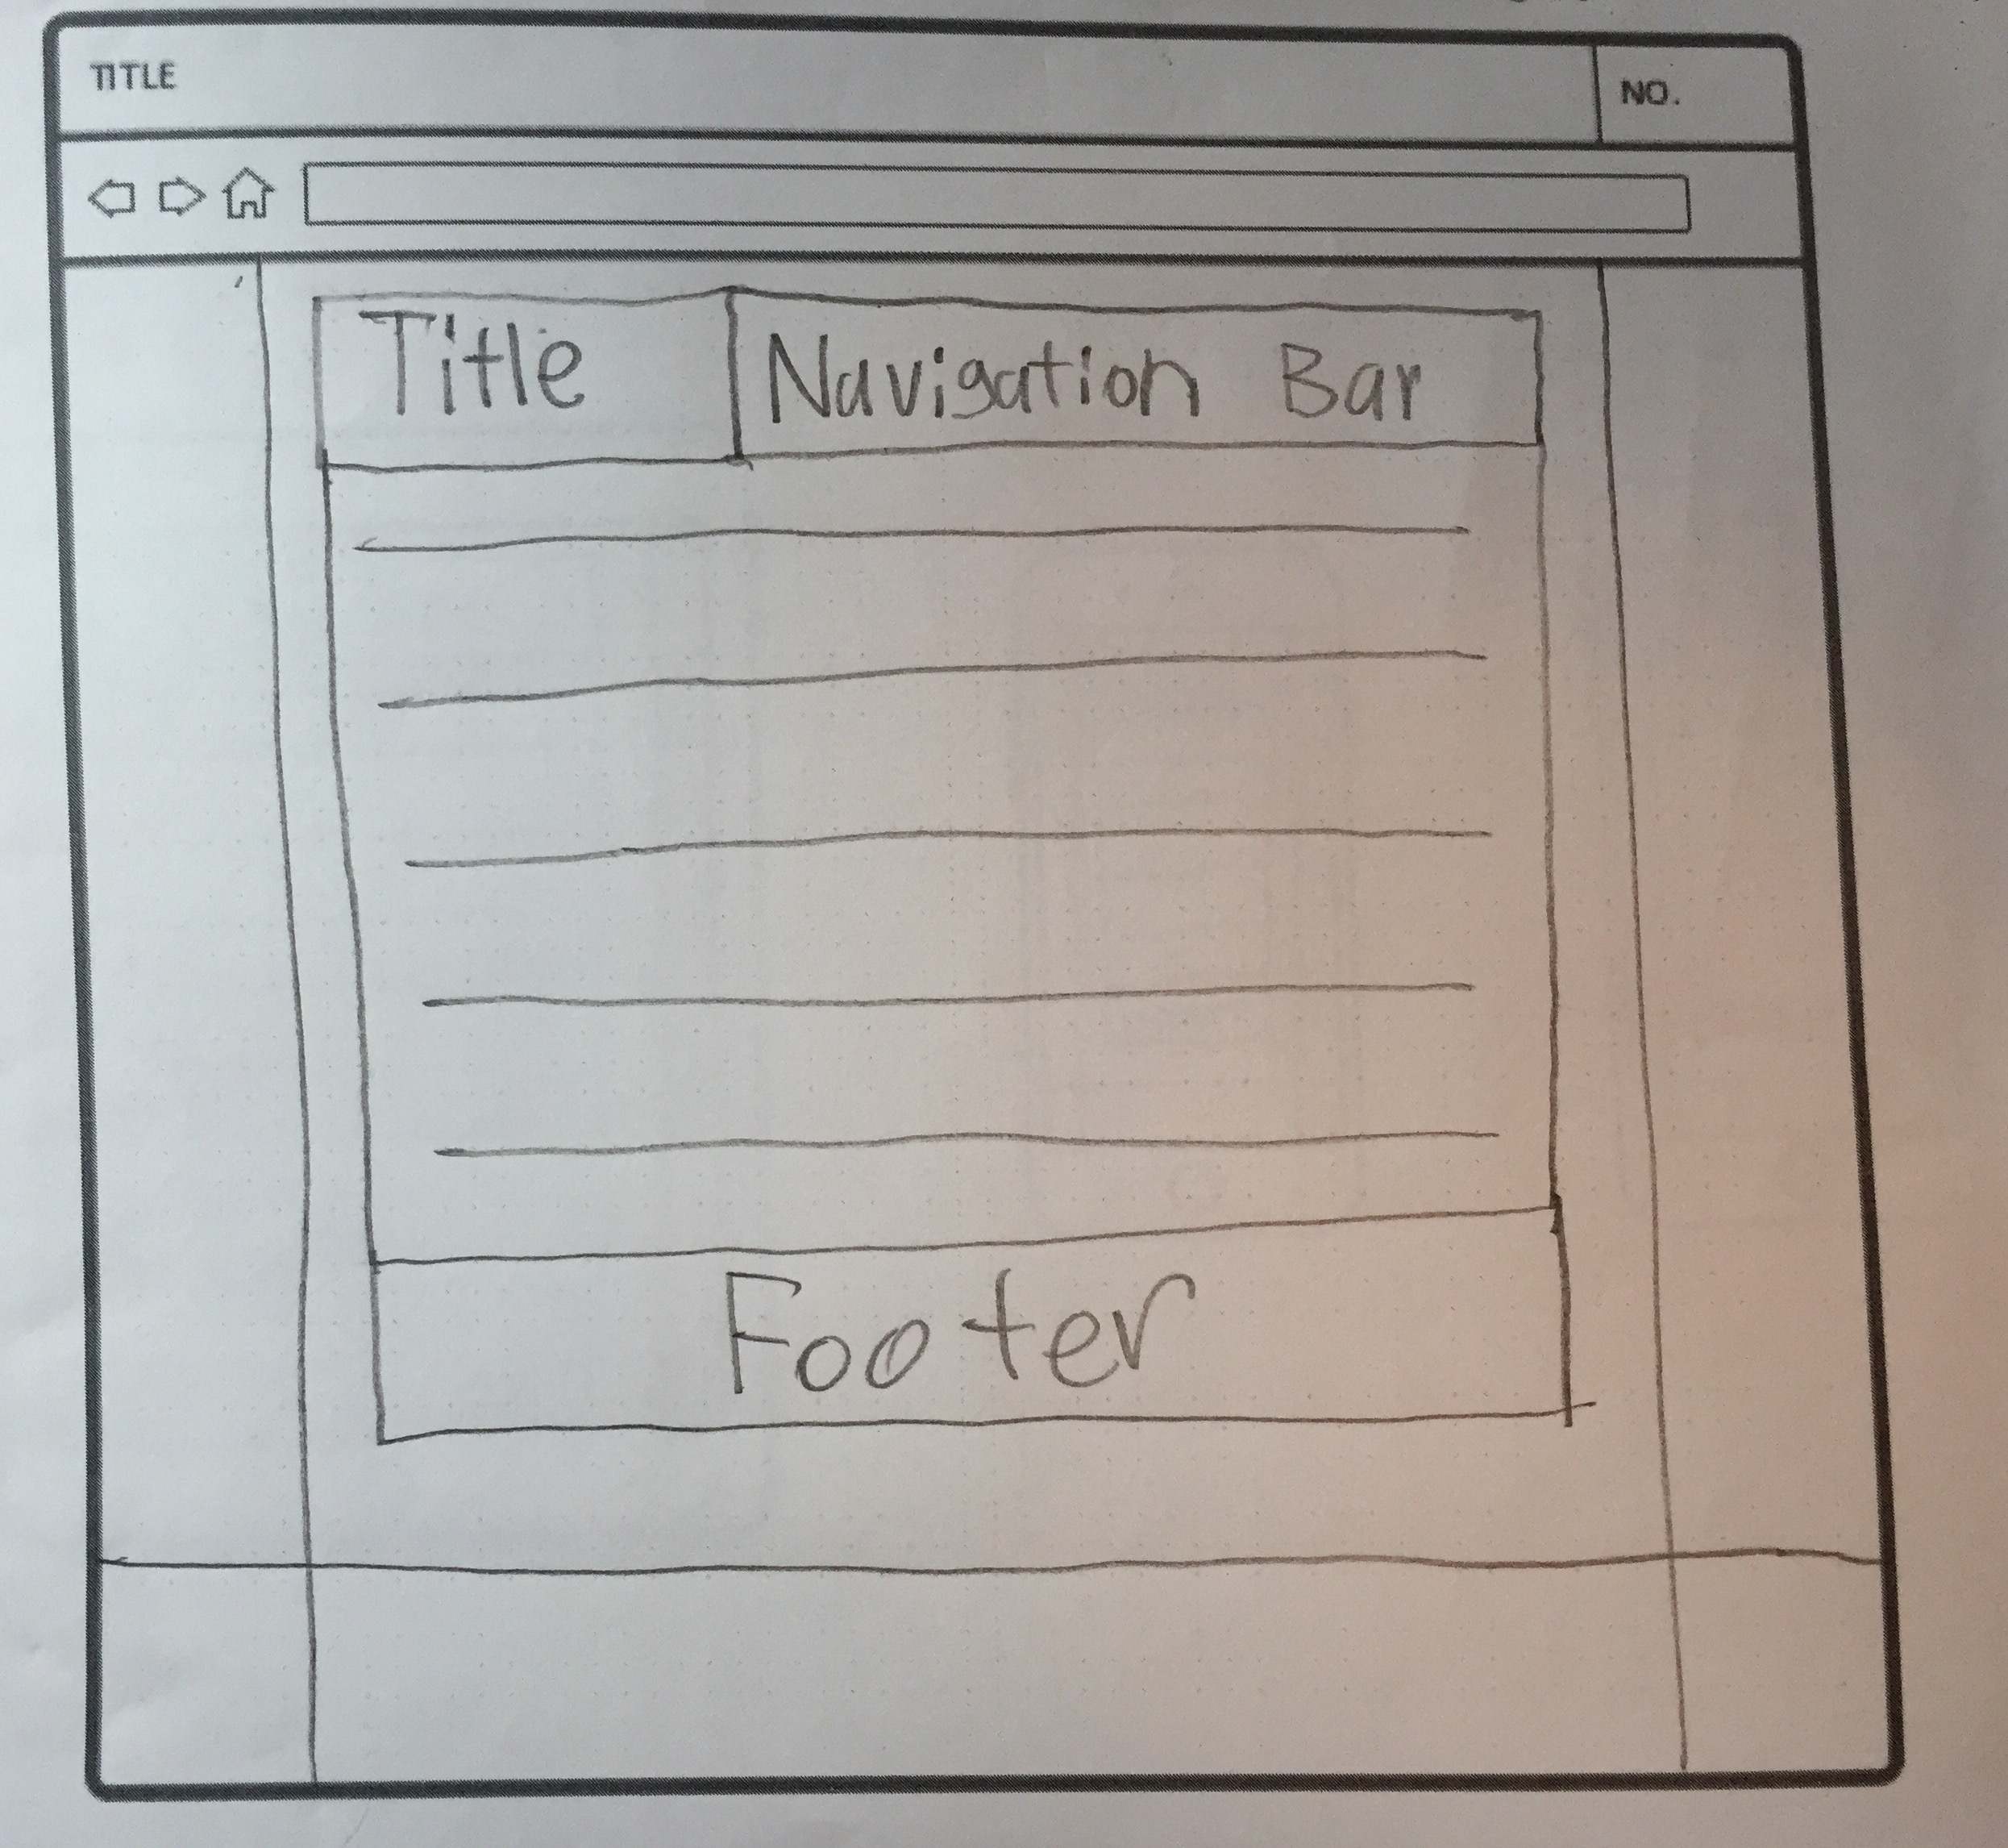 TITLE NO.
Title Navigation Bar
Footer